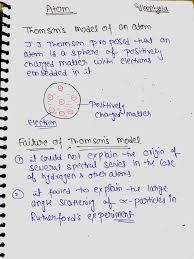 Atom
Thomson's model of an atom
J J Thomson proposed that an
atom is a sphere of positively
charged matter with electrons
embedded in it.
Positively
charged matter
Electron
Failure of Thomson's model
① it could not explain the origin of
several spectral series in the case
of hydrogen & other atoms.
② it failed to explain the large
angle scattering of α-particles in
Rutherford's experiment